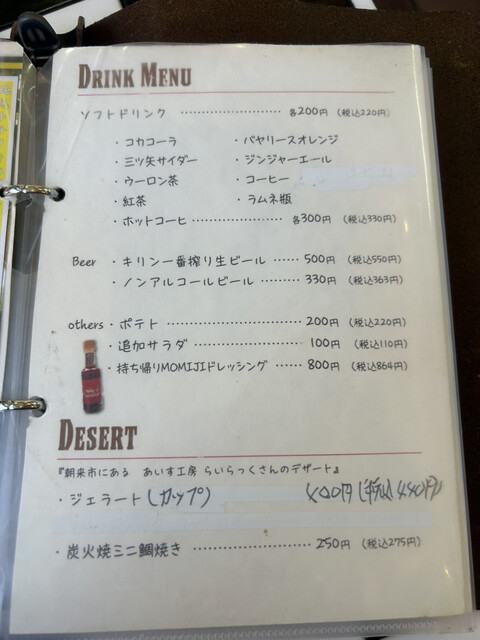 DRINK MENU
ソフトドリンク ………………… 各200円 (税込220円)
・コカコーラ ・バヤリースオレンジ
・三ツ矢サイダー ・ジンジャーエール
・ウーロン茶 ・コーヒー
・紅茶 ・ラムネ瓶
・ホットコーヒ ………………… 各300円 (税込330円)
Beer ・キリン一番搾り生ビール …… 500円 (税込550円)
・ノンアルコールビール …… 330円 (税込363円)
others ・ポテト ………………………… 200円 (税込220円)
・追加サラダ ………………… 100円 (税込110円)
・持ち帰りMOMIJIドレッシング …… 800円 (税込864円)
DESERT
『朝来市にある あいす工房 らいらっくさんのデザート』
・ジェラート(カップ) 400円(税込440円)
・炭火焼ミニ鯛焼き ………………… 250円 (税込275円)